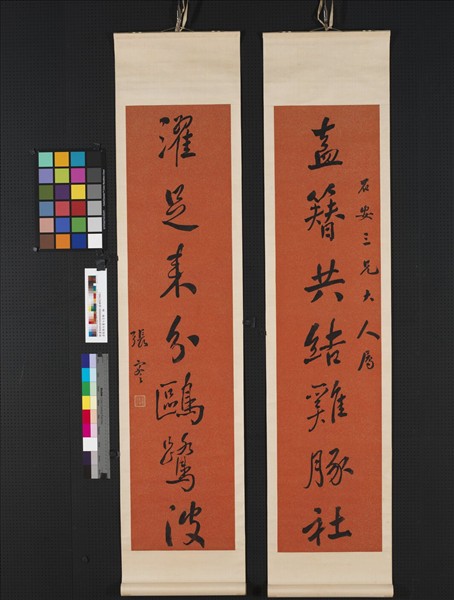 盍簪共結雞豚社
石安三兄大人屬
濯足來分鷗鷺波
張謇